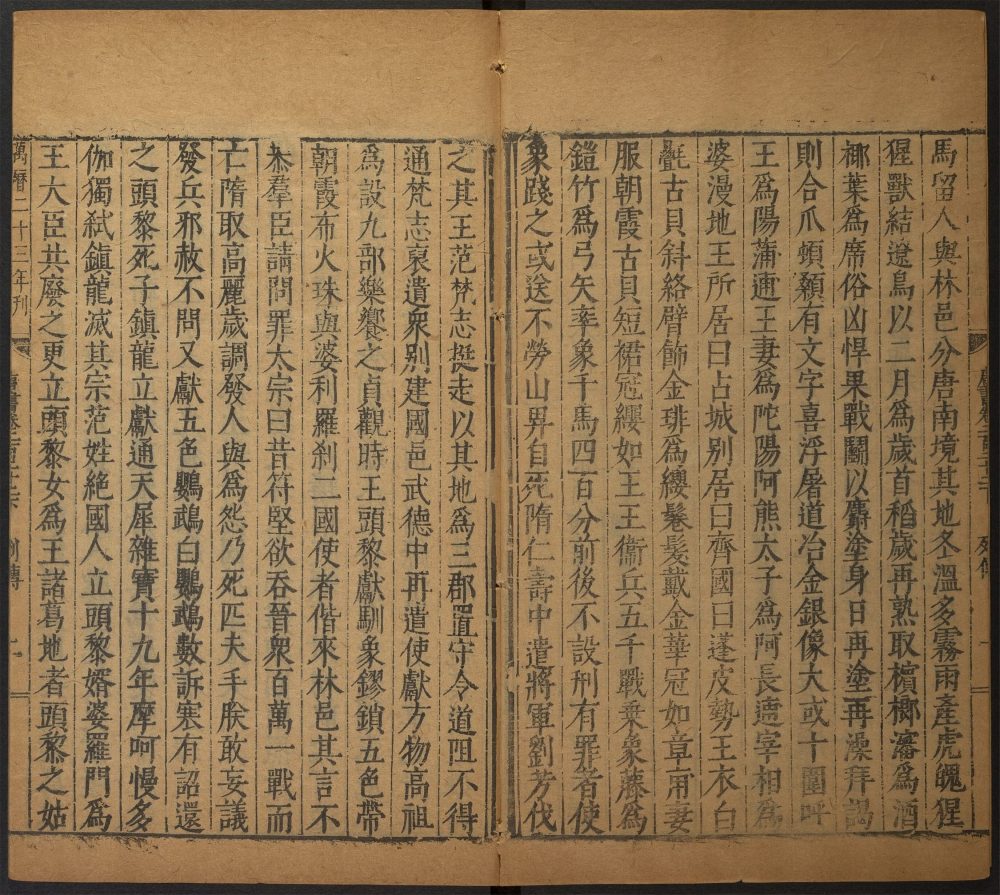 馬留人與林邑分唐南境其地冬溫多霧雨產虎魄猩
猩獸結遼鳥以二月爲歲首稻歲再熟取檳榔瀋爲酒
椰葉爲席俗凶悍果戰鬭以麝塗身日再塗再澡拜謁
則合爪頓顙有文字喜浮屠道冶金銀像大或十圍呼
王爲陽蒲逋王妻爲陀陽阿熊太子爲阿長逋宰相爲
婆漫地王所居曰占城別居曰齊國曰蓬皮勢王衣白
㲲古貝斜絡臂飾金琲爲纓鬈髮戴金華冠如章甫妻
服朝霞古貝短裙冠纓如王王衞兵五千戰乗象藤爲
鎧竹爲弓矢率象千馬四百分前後不設刑有罪者使
象踐之或送不勞山畀自死隋仁壽中遣將軍劉芳伐
之其王范梵志挺走以其地爲三郡置守令道阻不得
通梵志裒遺衆別建國邑武德中再遣使獻方物高祖
爲設九部樂饗之貞觀時王頭黎獻馴象鏐鎖五色帶
朝霞布火珠與婆利羅剎二國使者偕來林邑其言不
恭羣臣請問罪太宗曰昔苻堅欲吞晉衆百萬一戰而
亡隋取高麗歲調發人與爲怨乃死匹夫手朕敢妄議
發兵邪赦不問又獻五色鸚鵡白鸚鵡數訴寒有詔還
之頭黎死子鎭龍立獻通天犀雜寶十九年摩呵慢多
伽獨弒鎭龍滅其宗范姓絕國人立頭黎婿婆羅門爲
王大臣共廢之更立頭黎女爲王諸葛地者頭黎之姑
萬曆二十三年刊
列傳